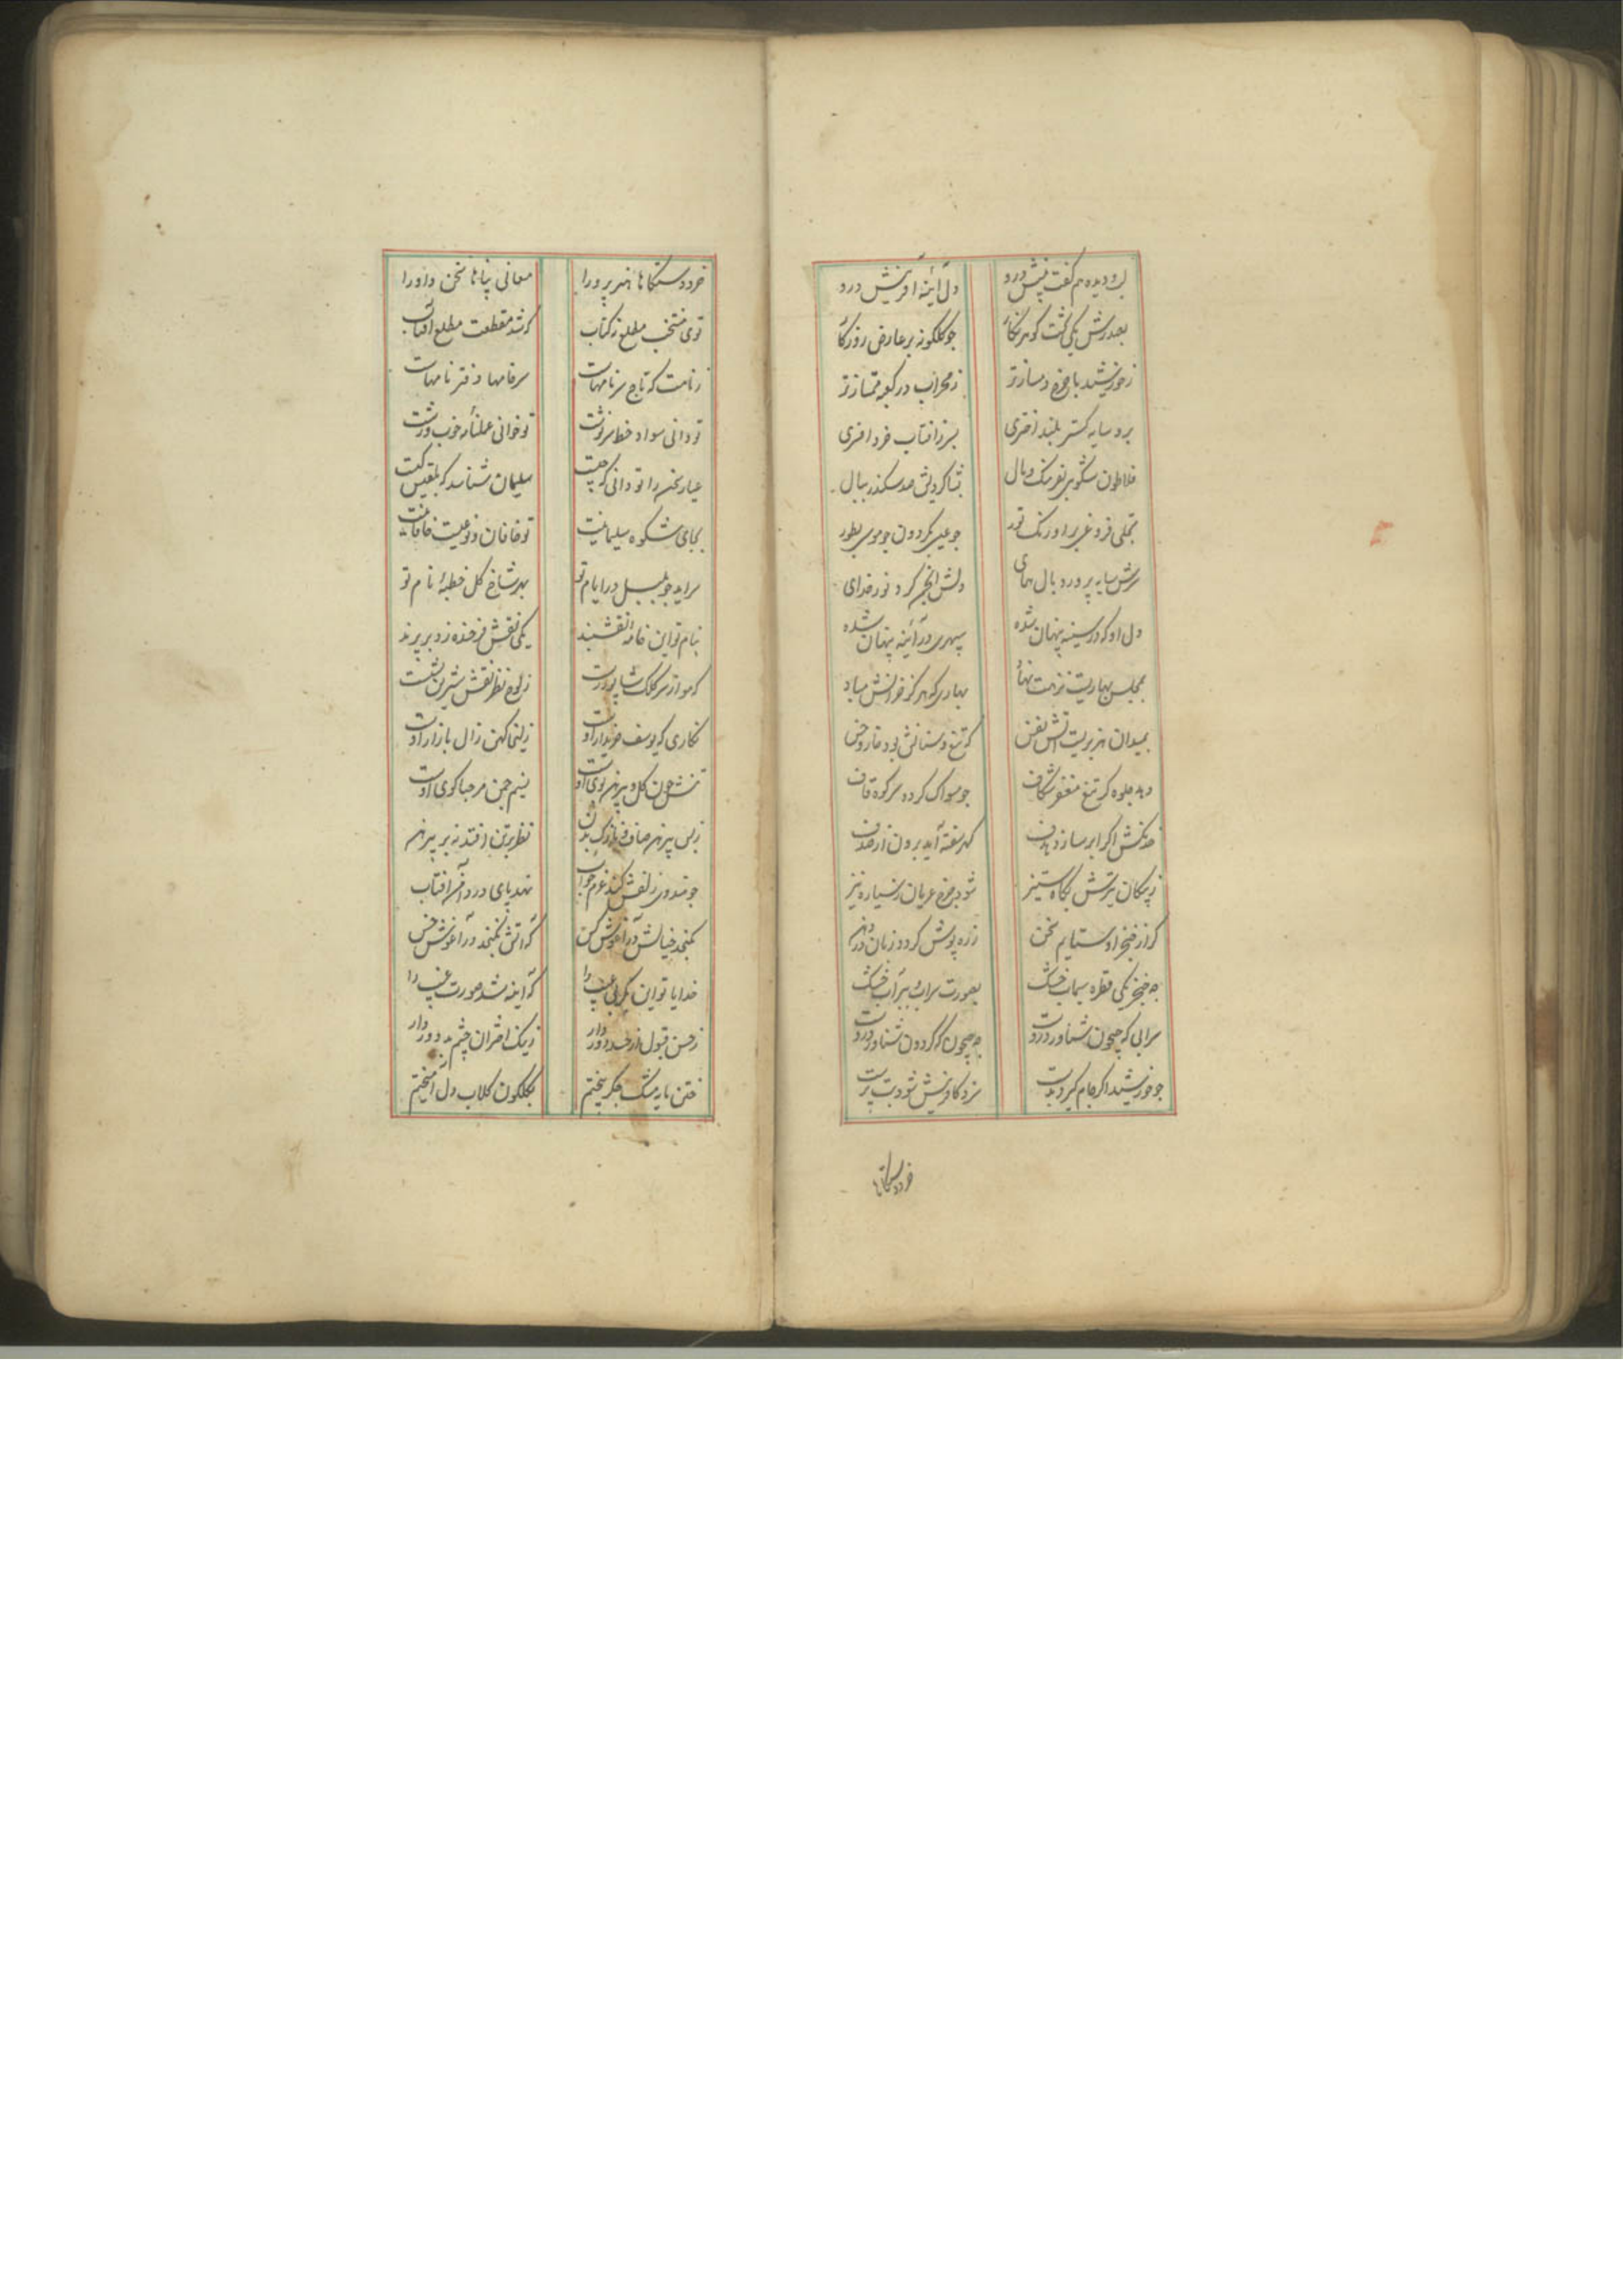 دل آینهٔ آفرینش درو
بصدرش یکی کشت کوهرنکار جو کلکونه بر عارض روزکار
زخورشید با جرخ دمسازتر ز محراب در کعبه ممتازتر
برو سایه کستر بلند اختری بسر افتاب خرد افسری
فلاطون شکوهی بفرهنک و بال بشاکردیش صد سکندر ببال
تجلی فروغی بر اورنک نور جو عیسی بکردون جو موسی بطور
سرش سایه پرورد بال همای دلش انجمن کرد نور خدای
دل او که در سینه پنهان شده سپهری در آئینه پنهان شده
بمجلس بهاریست نزهت نهاد بهاری که هرکز خزانش مباد
بمیدان هژبریست آتش نفس که تیغ و سنانش بود خار و خس
دهد جلوه کر تیغ مغفر شکاف جو مسواک کردد سر کوه قاف
خدنکش اکر ابر سازد هدف کهر سفته آید برون از صدف
ز پیکان تیرش بکاه ستیز شود جرخ عریان ز سیاره نیز
کر از خنجر او ستایم سخن زره پوش کردد زبان در دهن
جه خنجر یکی قطره سیماب خشک بصورت سراب و بسیرآب خشک
سرابی که جیحون شناور دروست جه جیحون که کردون شناور دروست
جو خورشید اکر جام کیرد بدست سزد کافرینش شود بت پرست
خرد دستکاها
خرد دستکاها هنر پرورا معانی پناها سخن داورا
توی منتخب مطلع زین کتاب که شد مقطعت مطلع افتاب
ز نامت که تاج سر نامهاست سر خامها دفتر نامهاست
تو دانی سواد خط سرنوشت تو خوانی عملنامهٔ خوب و زشت
عیار سخن را تو دانی که جیست سلیمان شناسد که بلقیس کیست
بجای شکوه سلیمانیت تو خاقان و نوعیست خاقانیت
سراید جو بلبل در ایام تو بهر شاخ کل خطبهٔ نام تو
بنام تو این خامهٔ نقشبند یکی نقش فرخنده زد بر پرند
که مو از سر کلک شاپور رست ز لوح نظر نقش شیرین بشست
نکاری که یوسف خریدار اوست زلیخا کهن زال بازار اوست
تنش جون کل و پیرهن بوی اوست نسیم جمن مرحبا کوی اوست
ز بس پیرهن صاف و نازک بدن نظر بر تن افتد نه بر پیرهن
جو هندوی زلفش کند عزم خواب نهد پای در دامن افتاب
نکنجد خیالش در آغوش کس که آتش نکنجد در آغوش خس
خدایا تو این بکر بی عیب را که آینه شد صورت غیب را
ز حسن قبول از حسد دور دار ز نیک اختران جشم بد دور دار
ختن مایه مشک جکر بیختم بکلکون کلاب دل آمیختم